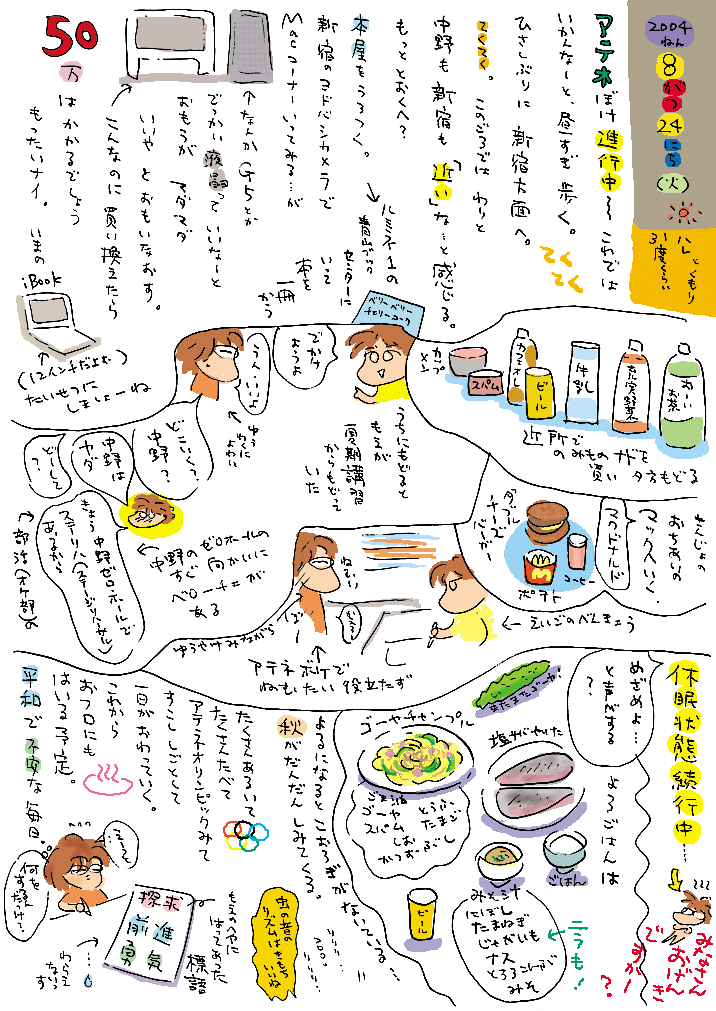 2004
ねん
8
がつ
24
にち
(火)
ハレ
とくもり
31度くらい
アテネぼけ進行中〜 これでは
いかんなーと、昼すぎ歩く。
ひさしぶりに 新宿方面へ。
てくてく
てくてく。このごろでは わりと
中野も新宿も「近い」な…と感じる。
もっと とおくへ?
本屋をうろつく。
→ルミネ1の
青山ブック
センターに
いて
本を
一冊
かう
新宿のヨドバシカメラで
Macコーナーいってみる…が
↑なんか G5とか
でっかい液晶っていいなーと
おもうが マダマダ
いいや とおもいなおす。
こんなのに買い換えたら
50
万
はかかるでしょう
もったいナイ。
いまの
iBook
(12インチだよむ)
たいせつに
しましょーね
ベリーベリー
チョリーヨーク
でかけ
ようよ
うん、いいよ
ゆうじに
よわい
カップ
メン
スパム
カフェオレ
ビール
牛乳
充実野菜
おーいお茶
近所で
のみものナドを
買い 夕方もどる
うちにもどると
もえが
夏期講習
からもどって
いた
どこいく?
中野?
中野は
ヤダ
どーして
?
きょう中野ゼロホールで
ステリハ(ステージリハーサル)
あるから
↑部活(オケ部)の
←中野のゼロホールの
すぐ向かいに
ベローチェが
ある
せんじょの
おちあいの
マックへいく。
マクドナルド
ダブル
チーズ
バーガー
コーヒー
ポテト
ねむい
←えいごのべんきょう
ゆうやけみながら
アテネボケで
ねむいたい役立たず
休眠状態続行中…
みなさん
おげんき
ですかー
?
めざめよ…
と声がする
?
よるごはんは
またまたゴーヤ
ゴーヤチャンプル
ごま油
ゴーヤ
スパム
とうふ
たまご
しお
かつおぶし
塩サバやいた
ごはん
ビール
みそ汁
にぼし
たまねぎ
じゃがいも
ナス
とろろこんぶ
みそ
←ニラも!
よるになるとこおろぎがないている…
リリリリ…
秋がだんだんしみてくる。
虫の音の
リズムはきもち
いいね
たくさんあるいて
たくさんたべて
アテネオリンピックみて
すこし しごとして
一日がおわっていく。
これから
おフロにも
はいる予定。
平和で不安な毎日。
えーと
何を
するんだっけ?
探求
前進
勇気
もえのへやに
はってあった
標語
↑…
わらえ
ないっす